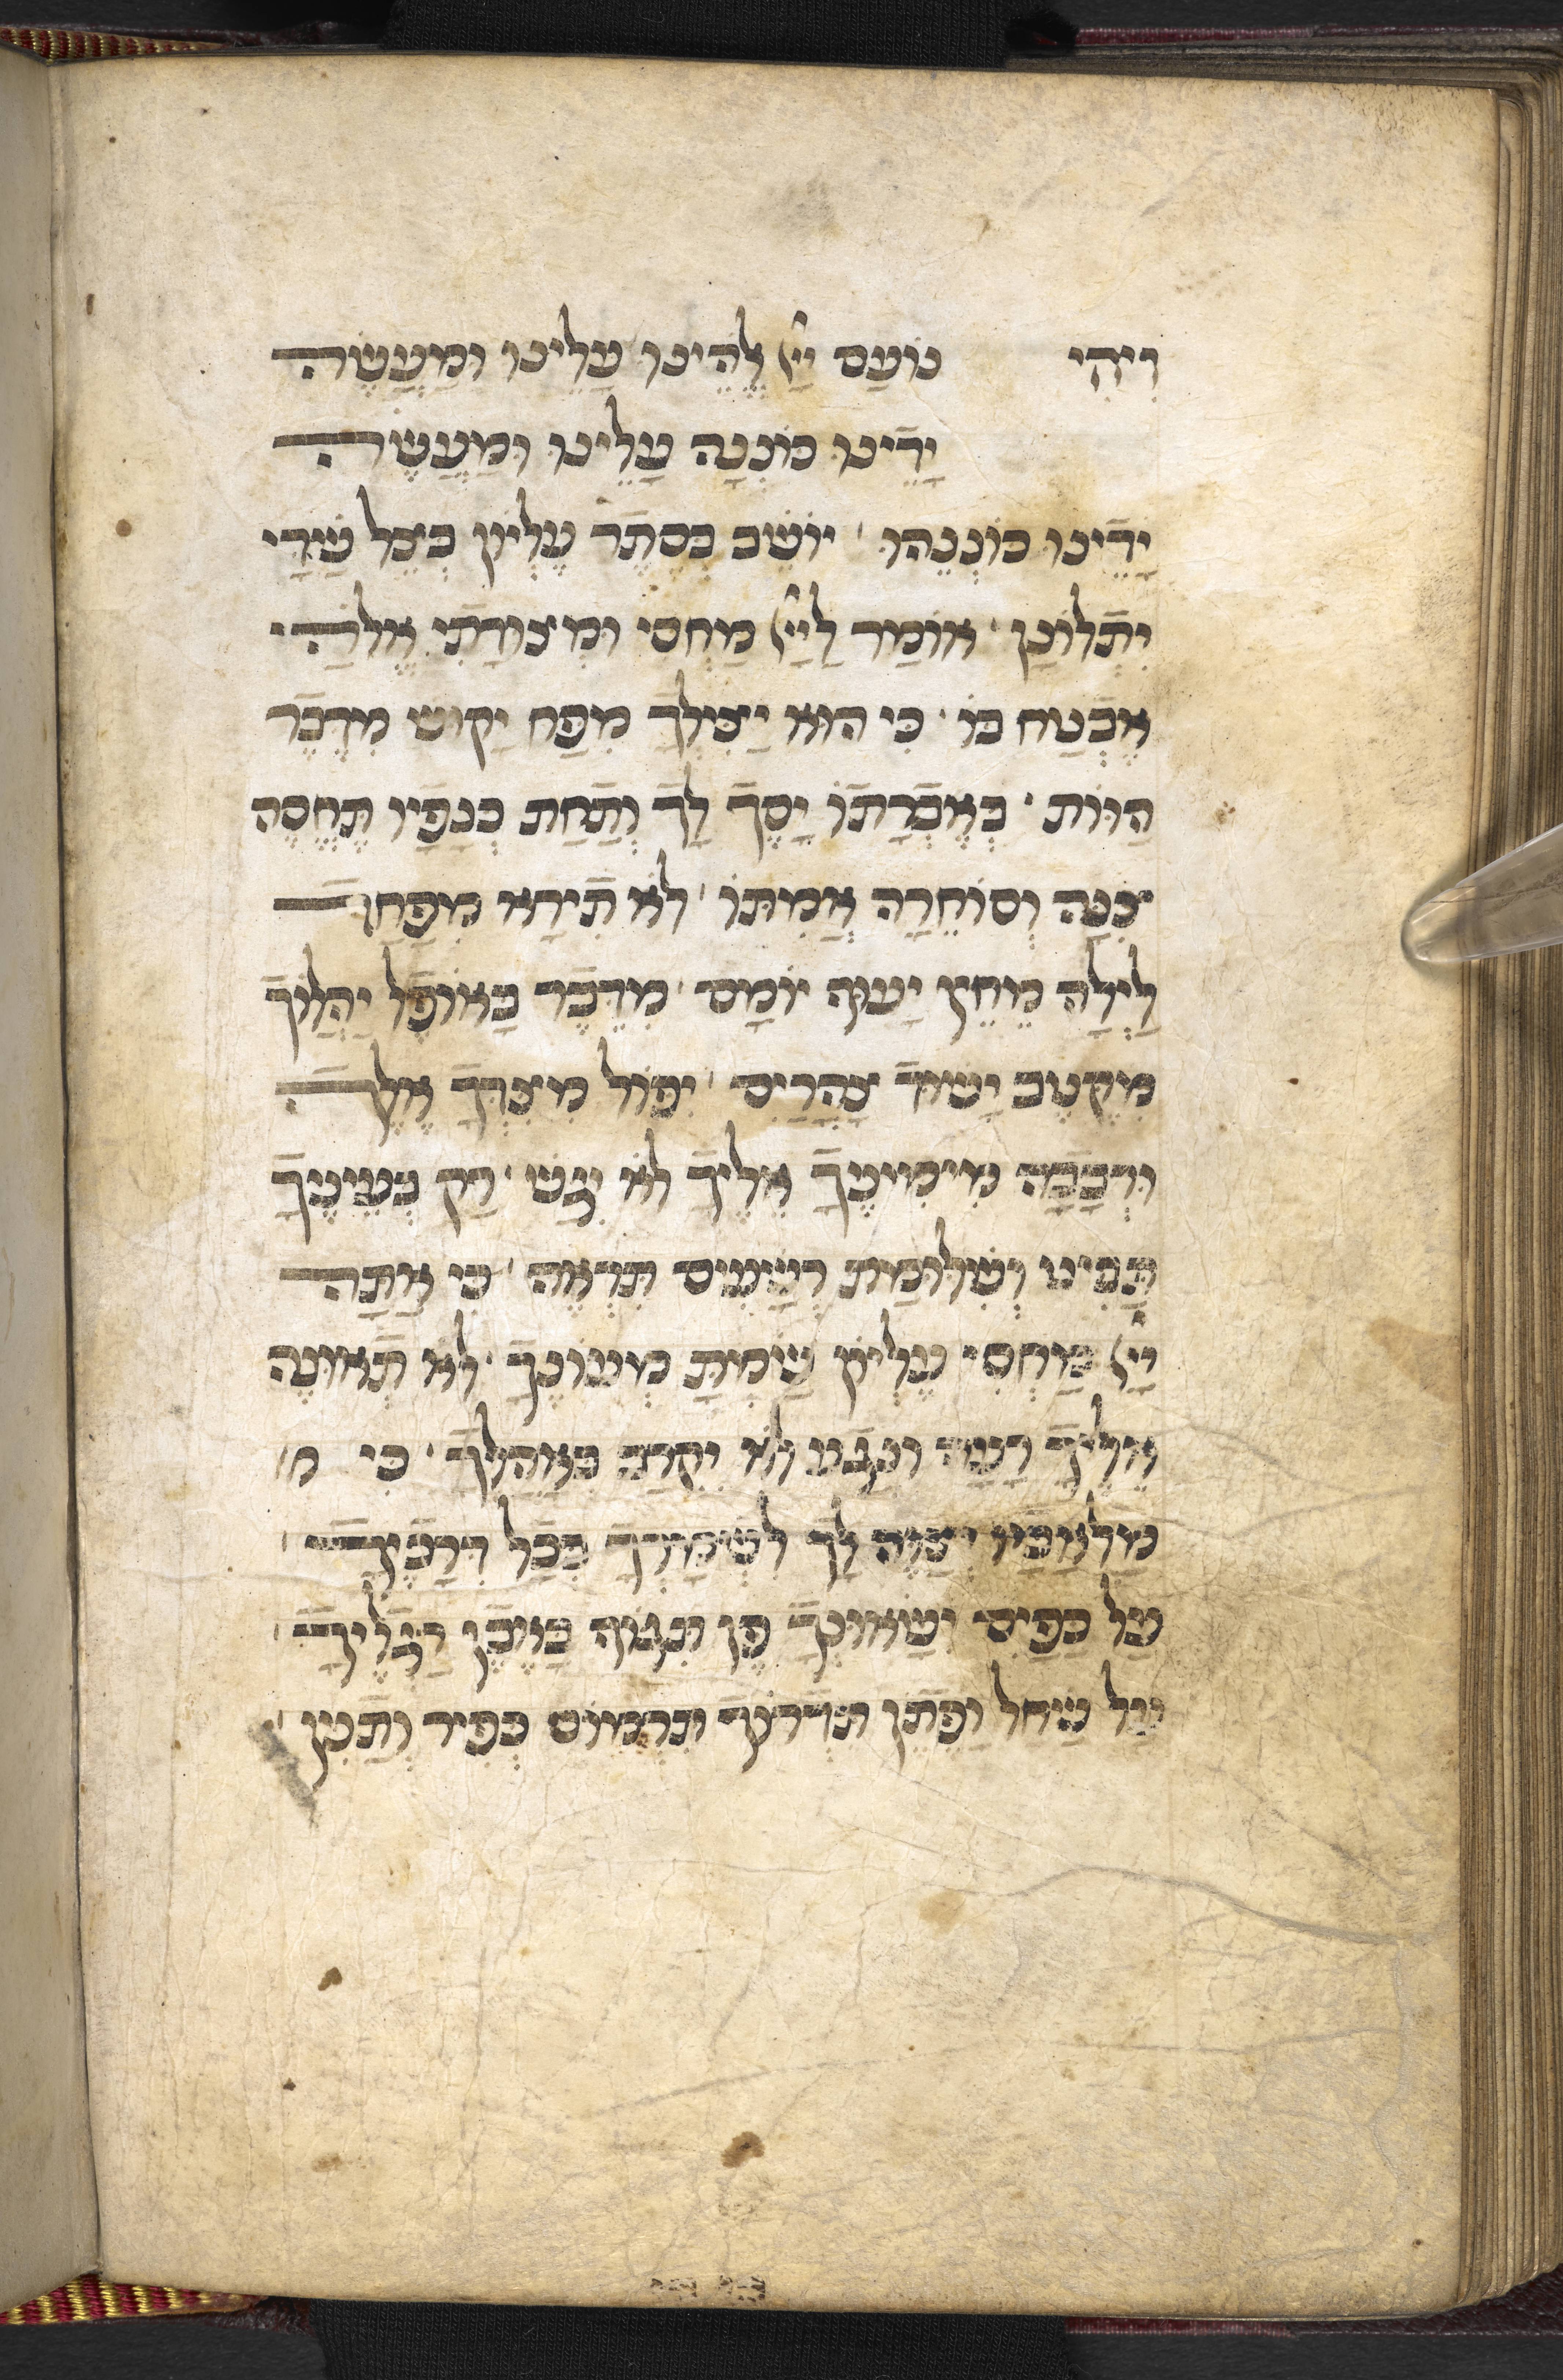 וִיהִי נוֹעַם יְיָ אֱלֹהֵינוּ עָלֵינוּ וּמַעֲשֵׂה
יָדֵינוּ כּוֹנְנָה עָלֵינוּ וּמַעֲשֵׂה
יָדֵינוּ כּוֹנְנֵהוּ יוֹשֵׁב בְּסֵתֶר עֶלְיוֹן בְּצֵל שַׁדַּי
יִתְלוֹנָן אוֹמַר לַיְיָ מַחְסִי וּמְצוּדָתִי אֱלֹהַי
אֶבְטַח בּוֹ כִּי הוּא יַצִּילְךָ מִפַּח יָקוּשׁ מִדֶּבֶר
הַוּוֹת בְּאֶבְרָתוֹ יָסֶךְ לָךְ וְתַחַת כְּנָפָיו תֶּחְסֶה
צִנָּה וְסוֹחֵרָה אֲמִתּוֹ לֹא תִירָא מִפַּחַד
לַיְלָה מֵחֵץ יָעוּף יוֹמָם מִדֶּבֶר בָּאוֹפֶל יַהֲלוֹךְ
מִקֶּטֶב יָשׁוּד צָהֳרָיִם יִפּוֹל מִצִּדְּךָ אֶלֶף
וּרְבָבָה מִימִינֶךָ אֵלֶיךָ לֹא יִגָּשׁ רַק בְּעֵינֶיךָ
תַבִּיט וְשִׁלּוּמַת רְשָׁעִים תִּרְאֶה כִּי אַתָּה
יְיָ מַחְסִי עֶלְיוֹן שַׂמְתָּ מְעוֹנֶךָ לֹא תְאוּנֶּה
אֵלֶיךָ רָעָה וְנֶגַע לֹא יִקְרַב בְּאָהֳלֶךָ כִּי מ
מַלְאָכָיו יְצַוֶּה לָּךְ לִשְׁמָרְךָ בְּכָל דְּרָכֶיךָ
עַל כַּפַּיִם יִשָּׂאוּנְךָ פֶּן תִּגּוֹף בָּאֶבֶן רַגְלֶיךָ
עַל שַׁחַל וָפֶתֶן תִּדְרוֹךְ תִּרְמוֹס כְּפִיר וְתַנִּין